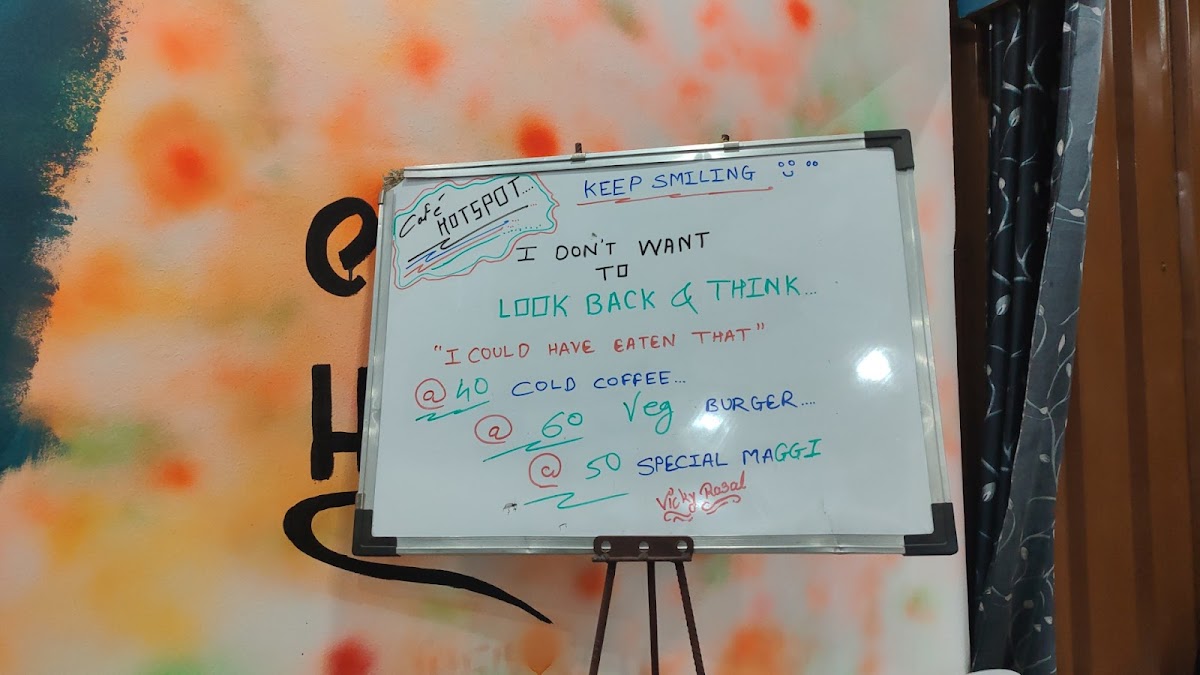 Café
HOTSPOT....
KEEP SMILING
I DON'T WANT
TO
LOOK BACK & THINK...
"I COULD HAVE EATEN THAT"
@ 40 COLD COFFEE...
@ 60 Veg BURGER....
@ 50 SPECIAL MAGGI
Vicky Rasal